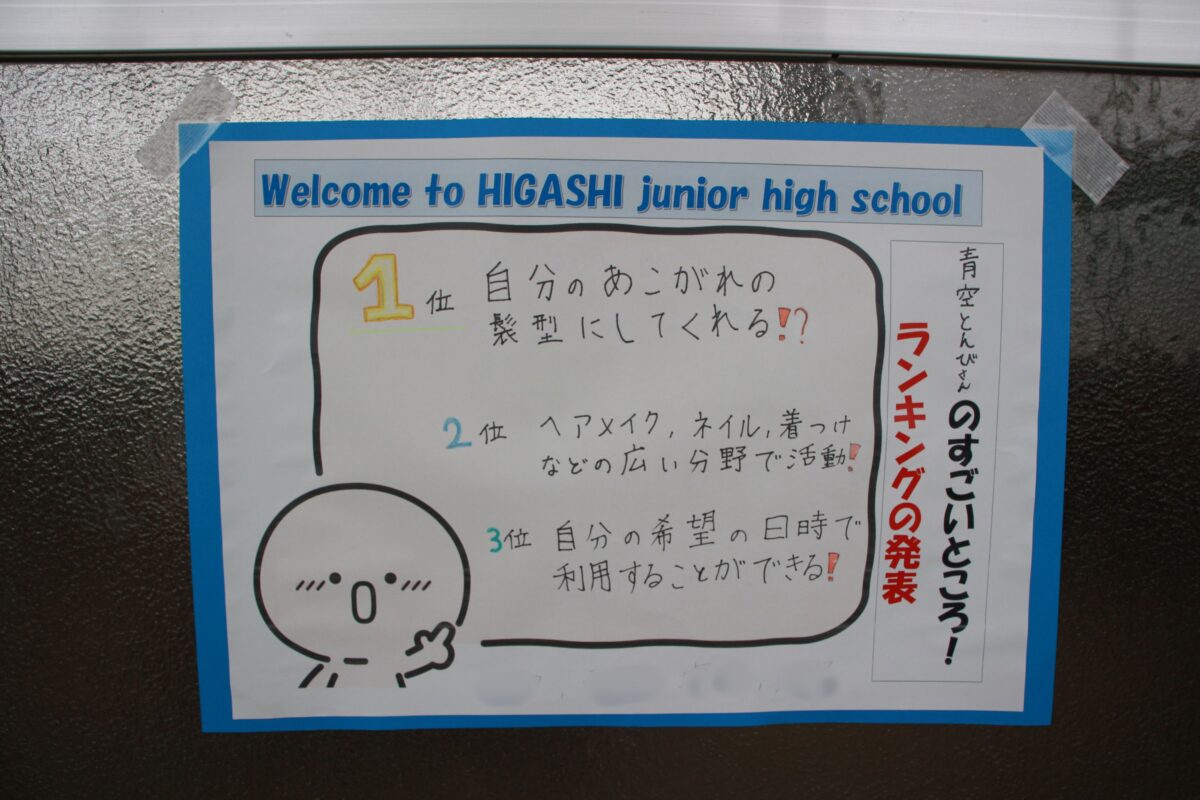 Welcome to HIGASHI junior high school
青空とんびさんのすごいところ！
ランキングの発表
1位 自分のあこがれの
髪型にしてくれる!?
2位 ヘアメイク,ネイル,着つけ
などの広い分野で活動!
3位 自分の希望の日時で
利用することができる!